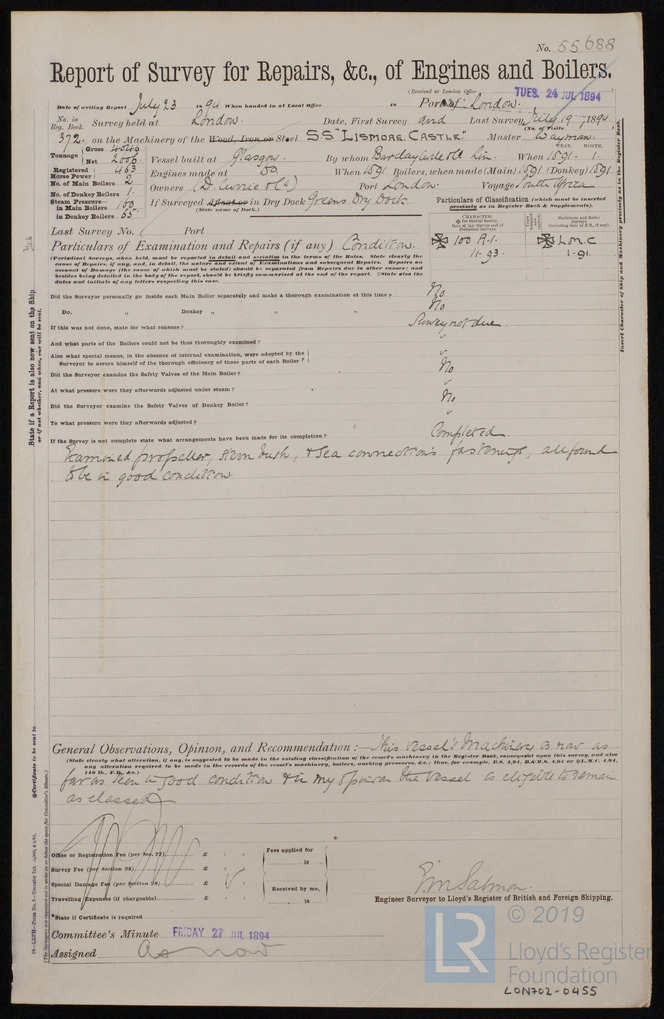 No. 55688
Report of Survey for Repairs, &c., of Engines and Boilers.
(Received at London Office TUES. 24 JUL 1894
Date of writing Report July 23 1894 When handed in at Local Office 18 Port of London.
No. in Reg. Book. Survey held at London. Date, First Survey and Last Survey July 19th, 1894
(No. of Visits
372. on the Machinery of the Wood, Iron or Steel S.S. "LISMORE CASTLE" Master Wayman.
Tonnage Gross Net 2006 Vessel built at Glasgow. By whom Barclay Curle & Co Lim. When 1891 - 1.
YEAR. MONTH.
Registered Horse Power 463 Engines made at Do. When 1891 Boilers, when made (Main) 1891 (Donkey) 1891.
No. of Main Boilers 2 Owners (D. Currie & Co) Port London. Voyage South Africa
No. of Donkey Boilers 1.
Steam Pressure in Main Boilers 160 If Surveyed Afloat or in Dry Dock Greens Dry Dock.
in Donkey Boilers 65
(State name of Dock.)
Particulars of Classification (which must be inserted precisely as in Register Book & Supplements).
Last Survey No. Port
CHARACTER.
✠ 100 A.1. ✠ L.M.C
11.93 1.91.
Particulars of Examination and Repairs (if any) Condition.
(Periodical Surveys, when held, must be reported in detail and seriatim in the terms of the Rules. State clearly the
causes of Repairs, if any, and, in detail, the nature and extent of Examinations and subsequent Repairs. Repairs on
account of Damage (the cause of which must be stated) should be separated from Repairs due to other causes; and
besides being detailed in the body of the report, should be briefly summarised at the end of the report. State also the
dates and initials of any letters respecting this case.
Did the Surveyor personally go inside each Main Boiler separately and make a thorough examination at this time? No
Do. " Donkey " " " No
If this was not done, state for what reasons? Survey not due
And what parts of the Boilers could not be thus thoroughly examined? "
Also what special means, in the absence of internal examination, were adopted by the
Surveyor to assure himself of the thorough efficiency of these parts of each Boiler? "
Did the Surveyor examine the Safety Valves of the Main Boiler? No
At what pressure were they afterwards adjusted under steam? "
Did the Surveyor examine the Safety Valves of Donkey Boiler? No
To what pressure were they afterwards adjusted? "
If the Survey is not complete state what arrangements have been made for its completion? Completed
Examined propeller, stern bush, & sea connections fastenings, all found
to be in good condition.
General Observations, Opinion, and Recommendation:— This vessel's Machinery is now as
(State clearly what alteration, if any, is suggested to be made in the existing classification of the vessel's machinery in the Register Book, consequent upon this survey, and also
any alteration required to be made in the records of the vessel's machinery, boilers, working pressures, &c.: thus, for example, B.S. 4,94, B.&M.S. 4,94 or L.M.C. 4,94,
140 lb., F.D., &c.)
far as seen in good condition & in my opinion the vessel is eligible to remain
as classed
Office or Registration Fee (per Sec. 27) £ Fees applied for
18
Survey Fee (per Section 28) £
Special Damage Fee (per Section 28) £ Received by me,
Travelling Expenses (if chargeable) £ 18
E. M. Salmon.
Engineer Surveyor to Lloyd's Register of British and Foreign Shipping.
*State if Certificate is required
Committee's Minute FRIDAY 27 JUL 1894
Assigned As now
State if a Report is also now sent on the Ship
or if not whether, and when, one will be sent.
Insert Character of Ship and Machinery precisely as in the Register Book.
LR
© 2019
Lloyd's Register
Foundation
LON702-0455